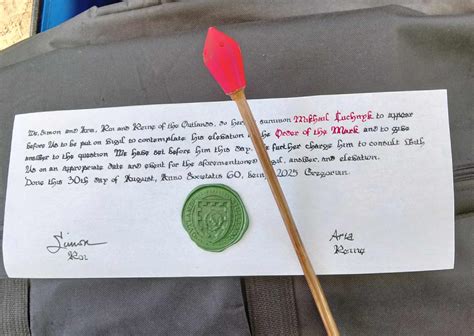 We, Simon and Aria, Roi and Reine of the Outlands, do here summon Mikhail Luchnyk to appear
before Us to be put on Vigil to contemplate his elevation to the Order of the Mark and to give
answer to the question We have set before him this day. We further charge him to consult with
Us on an appropriate date and event for the aforementioned vigil, answer, and elevation.
Done this 30th day of August, Anno Societatis 60, being 2025 Gregorian.
Simon
Roi
Aria
Reine